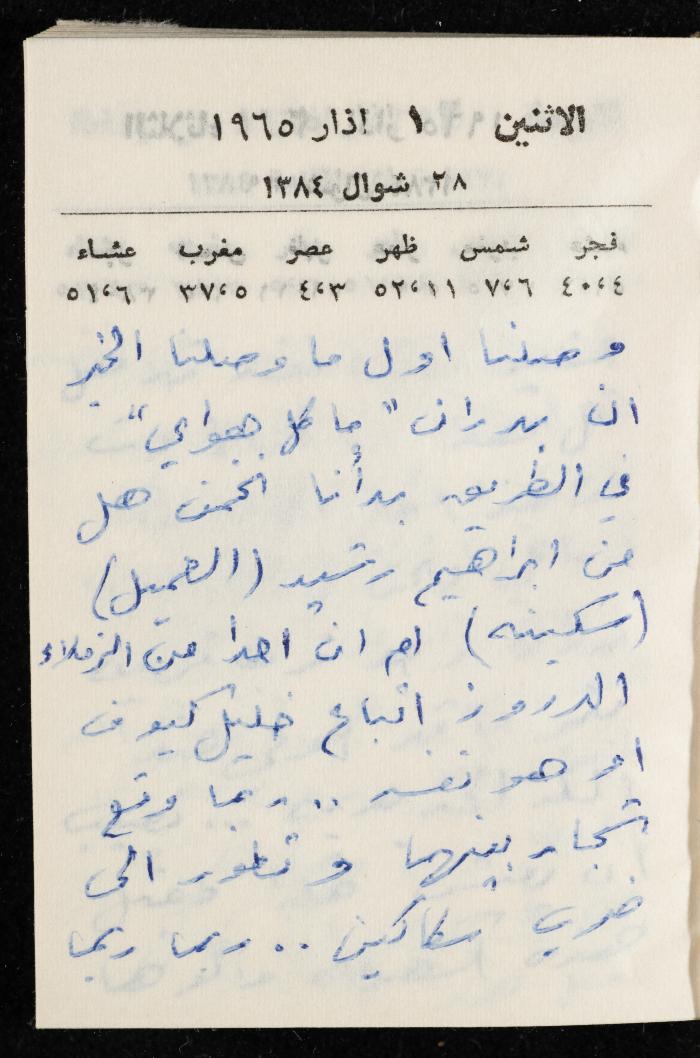 الاثنين ١ اذار ١٩٦٥
٢٨ شوال ١٣٨٤
فجر شمس ظهر عصر مغرب عشاء
٤،٤٠ ٦،٧ ١١،٥٢ ٣،٤ ٥،٣٧ ٦،٥١
وصلنا اول ما وصلنا الخبر
ان بدران "ما كل هواي"
في الطريق بدأنا نخمن هل
من ابراهيم رشيد (العميل)
(سكينه) ام ان احدا من الزملاء
الدروز اتباع خليل كيوف
او هو نفسه .. ربما وقع
شجار بينهما و تطور الى
ضرب سكاكين .. ربما ربما